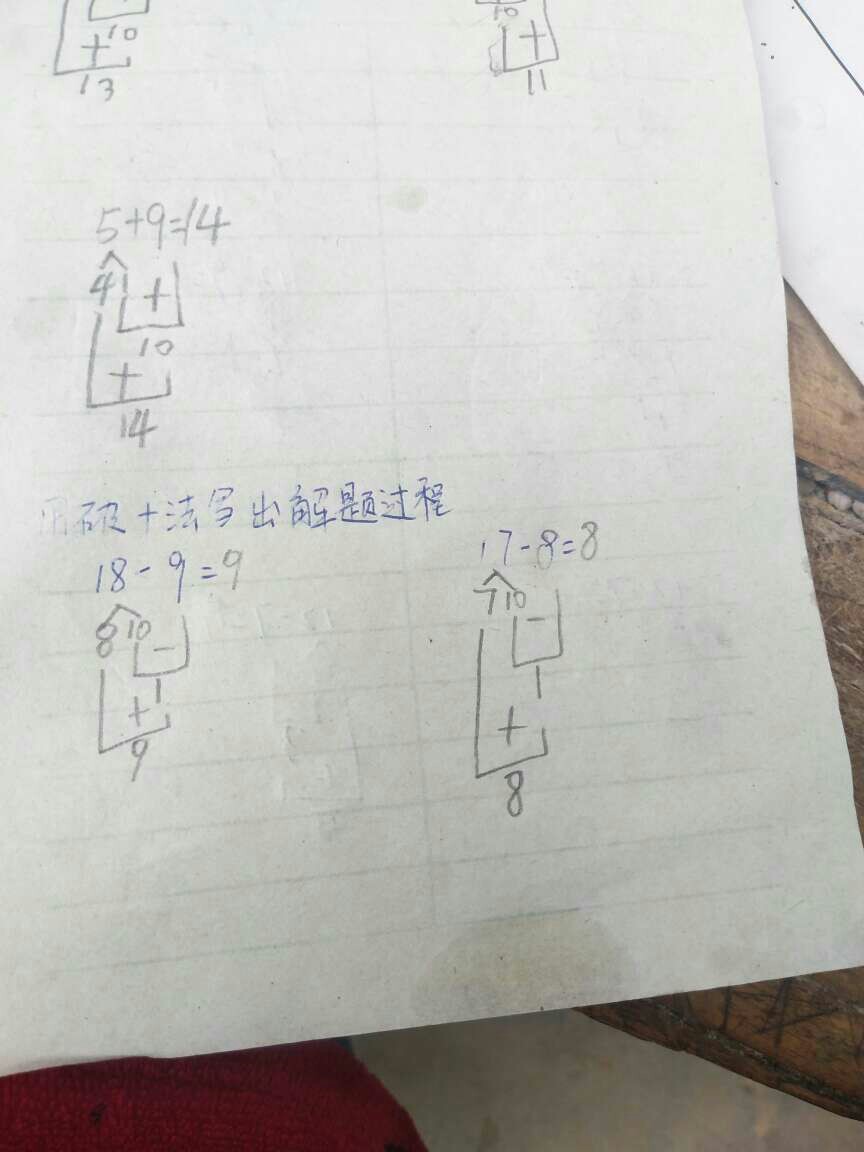 10 10
+ +
13 11
5+9=14
4 1 +
10
+
14
用破十法写出解题过程
18-9=9 17-8=8
8 10 - 7 10 -
1 1
+ +
9 8